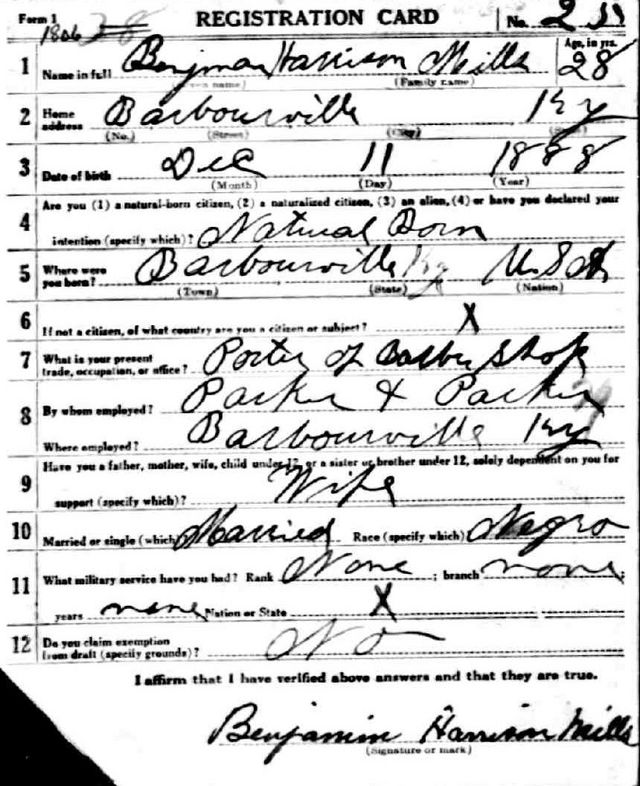 Form 1 REGISTRATION CARD No.
1806 38
1 Name in full Benjman Harrison Mills Age, in yrs. 28
(Family name)
2 Home address Barbourville Ky
(No.) (Street) (City) (State)
3 Date of birth Dec 11 1888
(Month) (Day) (Year)
4 Are you (1) a natural-born citizen, (2) a naturalized citizen, (3) an alien, (4) or have you declared your
intention (specify which)? Natural Born
5 Where were you born? Barbourville Ky U S A
(Town) (State) (Nation)
6 If not a citizen, of what country are you a citizen or subject? X
7 What is your present trade, occupation, or office? Porter of Barber Shop
8 By whom employed? Parker & Parker
Where employed? Barbourville Ky
9 Have you a father, mother, wife, child under 12, or a sister or brother under 12, solely dependent on you for
support (specify which)? Wife
10 Married or single (which) Married Race (specify which) Negro
11 What military service have you had? Rank None ; branch none ;
years none Nation or State X
12 Do you claim exemption from draft (specify grounds)? No
I affirm that I have verified above answers and that they are true.
Benjamin Harrison Mills
(Signature or mark)